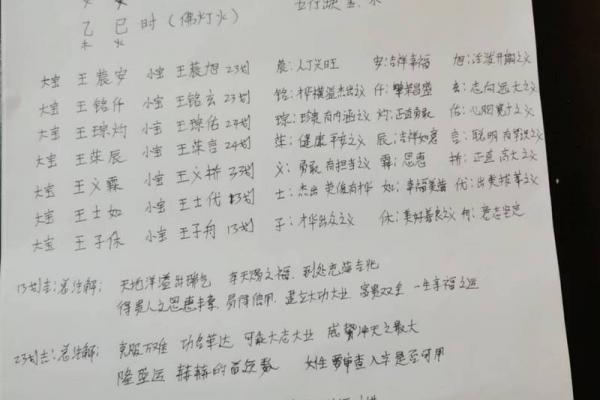 乙 巳 时 (佛灯火)
未 火
大宝 王晨安 小宝 王晨旭 23划 晨:人丁兴旺 安:吉祥幸福 旭:活泼开朗之义
大宝 王铭仟 小宝 王铭玄 23划 铭: 仟: 繁荣昌盛 玄:志向远大之义
大宝 王琼灼 小宝 王琼佑 24划 琼: 有内涵之义 灼:正直勇敢 佑:心胸宽广之义
大宝 王荣辰 小宝 王荣言 24划 健康平安之义 辰:吉祥如意 言:聪明有学识之义
大宝 王义霖 小宝 王义桥 33划 义:勇敢有担当之义 霖:恩惠 桥:正直高大之义
大宝 王士如 小宝 王士代 13划 士:杰出 英俊有才华 如:幸福美满 优:出类拔萃之义
大宝 王子保 小宝 王子舟 13划 子:才华出众之义 休:美好善良之义 舟:意志坚定
13划吉:总注解: 天地洋溢出瑞气 享天赐之福,到处充满吉兆
得贵人之恩惠丰厚 易得信用,建立大功大业 富贵双全 一生幸福之运
23划吉:总注解: 克服万难 功名荣达 可成大志大业 威势冲天之最大
隆盛运 赫赫的首领数 女性要审查八字是否可用